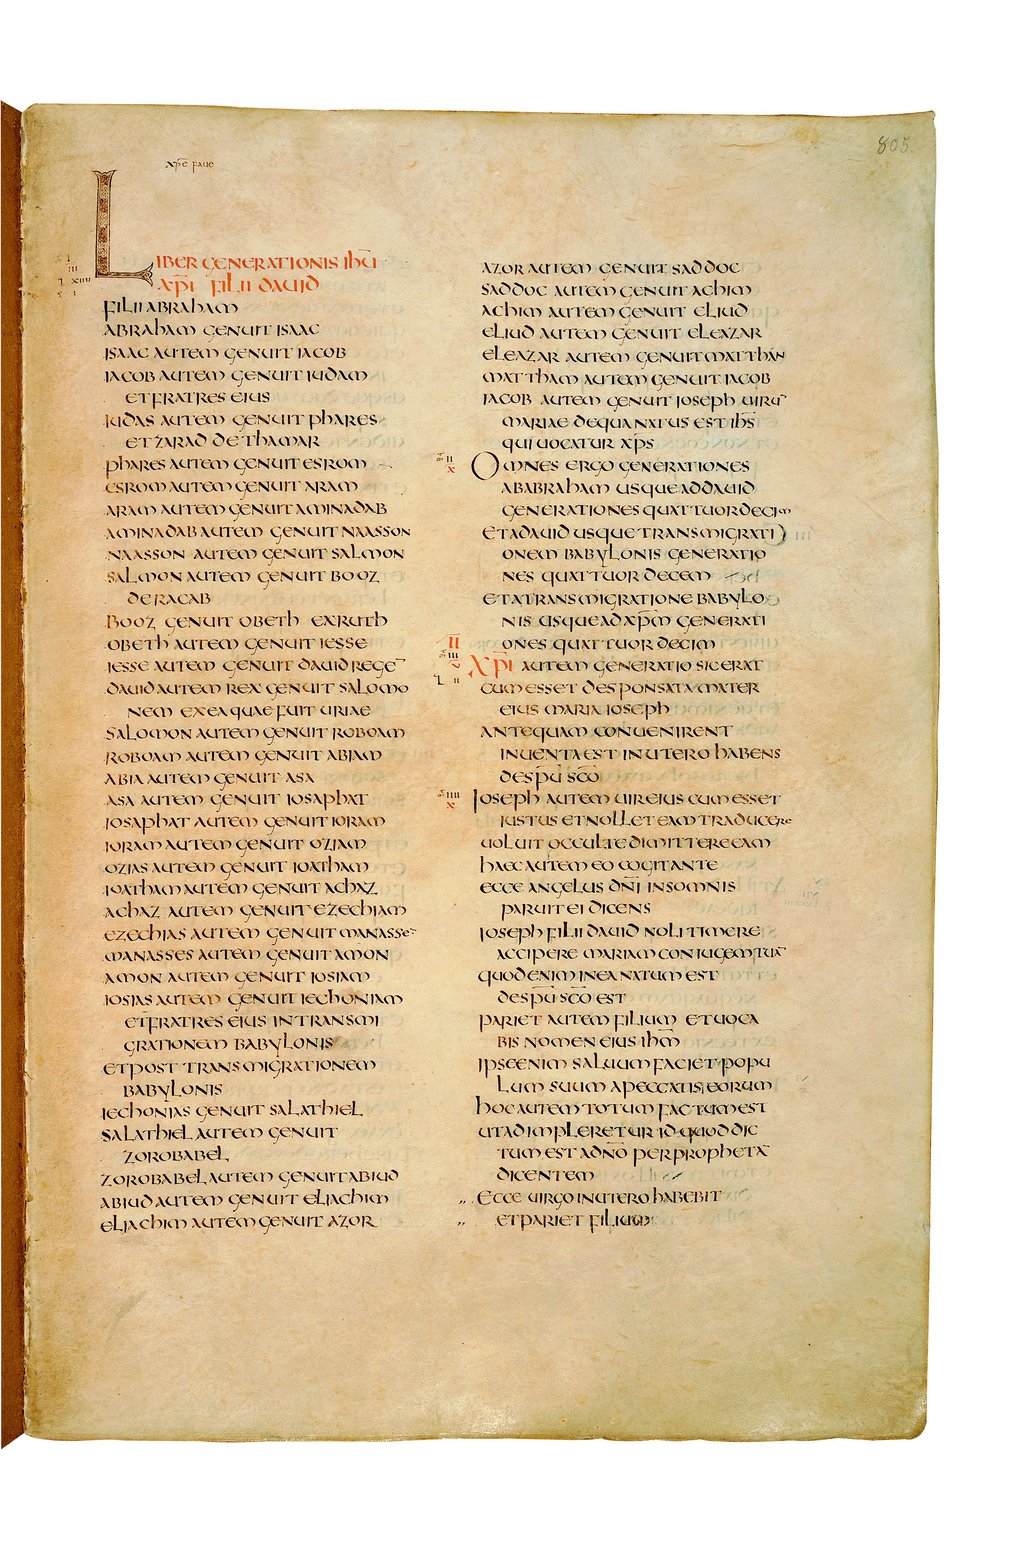 805
xp̄e faue
LIBER GENERATIONIS IH̄U
XP̄I FILII DAUID
FILII ABRAHAM
ABRAHAM GENUIT ISAAC
ISAAC AUTEM GENUIT IACOB
IACOB AUTEM GENUIT IUDAM
ET FRATRES EIUS
IUDAS AUTEM GENUIT PHARES
ET ZARAD DE THAMAR
PHARES AUTEM GENUIT ESROM
ESROM AUTEM GENUIT ARAM
ARAM AUTEM GENUIT AMINADAB
AMINADAB AUTEM GENUIT NAASSON
NAASSON AUTEM GENUIT SALMON
SALMON AUTEM GENUIT BOOZ
DE RACAB
BOOZ GENUIT OBETH EX RUTH
OBETH AUTEM GENUIT IESSE
IESSE AUTEM GENUIT DAUID REGE‾
DAUID AUTEM REX GENUIT SALOMO
NEM EX EA QUAE FUIT URIAE
SALOMON AUTEM GENUIT ROBOAM
ROBOAM AUTEM GENUIT ABIAM
ABIA AUTEM GENUIT ASA
ASA AUTEM GENUIT IOSAPHAT
IOSAPHAT AUTEM GENUIT IORAM
IORAM AUTEM GENUIT OZIAM
OZIAS AUTEM GENUIT IOATHAM
IOATHAM AUTEM GENUIT ACHAZ
ACHAZ AUTEM GENUIT EZECHIAM
EZECHIAS AUTEM GENUIT MANASSE‾
MANASSES AUTEM GENUIT AMON
AMON AUTEM GENUIT IOSIAM
IOSIAS AUTEM GENUIT IECHONIAM
ET FRATRES EIUS IN TRANSMI
GRATIONEM BABYLONIS
ET POST TRANSMIGRATIONEM
BABYLONIS
IECHONIAS GENUIT SALATHIEL
SALATHIEL AUTEM GENUIT
ZOROBABEL
ZOROBABEL AUTEM GENUIT ABIUD
ABIUD AUTEM GENUIT ELIACHIM
ELIACHIM AUTEM GENUIT AZOR
AZOR AUTEM GENUIT SADDOC
SADDOC AUTEM GENUIT ACHIM
ACHIM AUTEM GENUIT ELIUD
ELIUD AUTEM GENUIT ELEAZAR
ELEAZAR AUTEM GENUIT MATTHAN
MATTHAM AUTEM GENUIT IACOB
IACOB AUTEM GENUIT IOSEPH UIRU‾
MARIAE DE QUA NATUS EST IH̄S
QUI UOCATUR XP̄S
OMNES ERGO GENERATIONES
AB ABRAHAM USQUE AD DAUID
GENERATIONES QUATTUORDECIM
ET A DAUID USQUE TRANSMIGRATI
ONEM BABYLONIS GENERATIO
NES QUATTUORDECEM
ET A TRANSMIGRATIONE BABYLO
NIS USQUE AD XP̄M GENERATI
ONES QUATTUORDECIM
II
XP̄I AUTEM GENERATIO SIC ERAT
CUM ESSET DESPONSATA MATER
EIUS MARIA IOSEPH
ANTEQUAM CONUENIRENT
INUENTA EST IN UTERO HABENS
DE SP̄U SC̄O
IOSEPH AUTEM UIR EIUS CUM ESSET
IUSTUS ET NOLLET EAM TRADUCERE
UOLUIT OCCULTE DIMITTERE EAM
HAEC AUTEM EO COGITANTE
ECCE ANGELUS DN̄I IN SOMNIS
PARUIT EI DICENS
IOSEPH FILI DAUID NOLI TIMERE
ACCIPERE MARIAM CONIUGEM TUA‾
QUOD ENIM IN EA NATUM EST
DE SP̄U SC̄O EST
PARIET AUTEM FILIUM ET UOCA
BIS NOMEN EIUS IH̄M
IPSE ENIM SALUUM FACIET POPU
LUM SUUM A PECCATIS EORUM
HOC AUTEM TOTUM FACTUM EST
UT ADIMPLERETUR ID QUOD DIC
TUM EST A DN̄O PER PROPHETA‾
DICENTEM
„ ECCE UIRGO IN UTERO HABEBIT
„ ET PARIET FILIUM